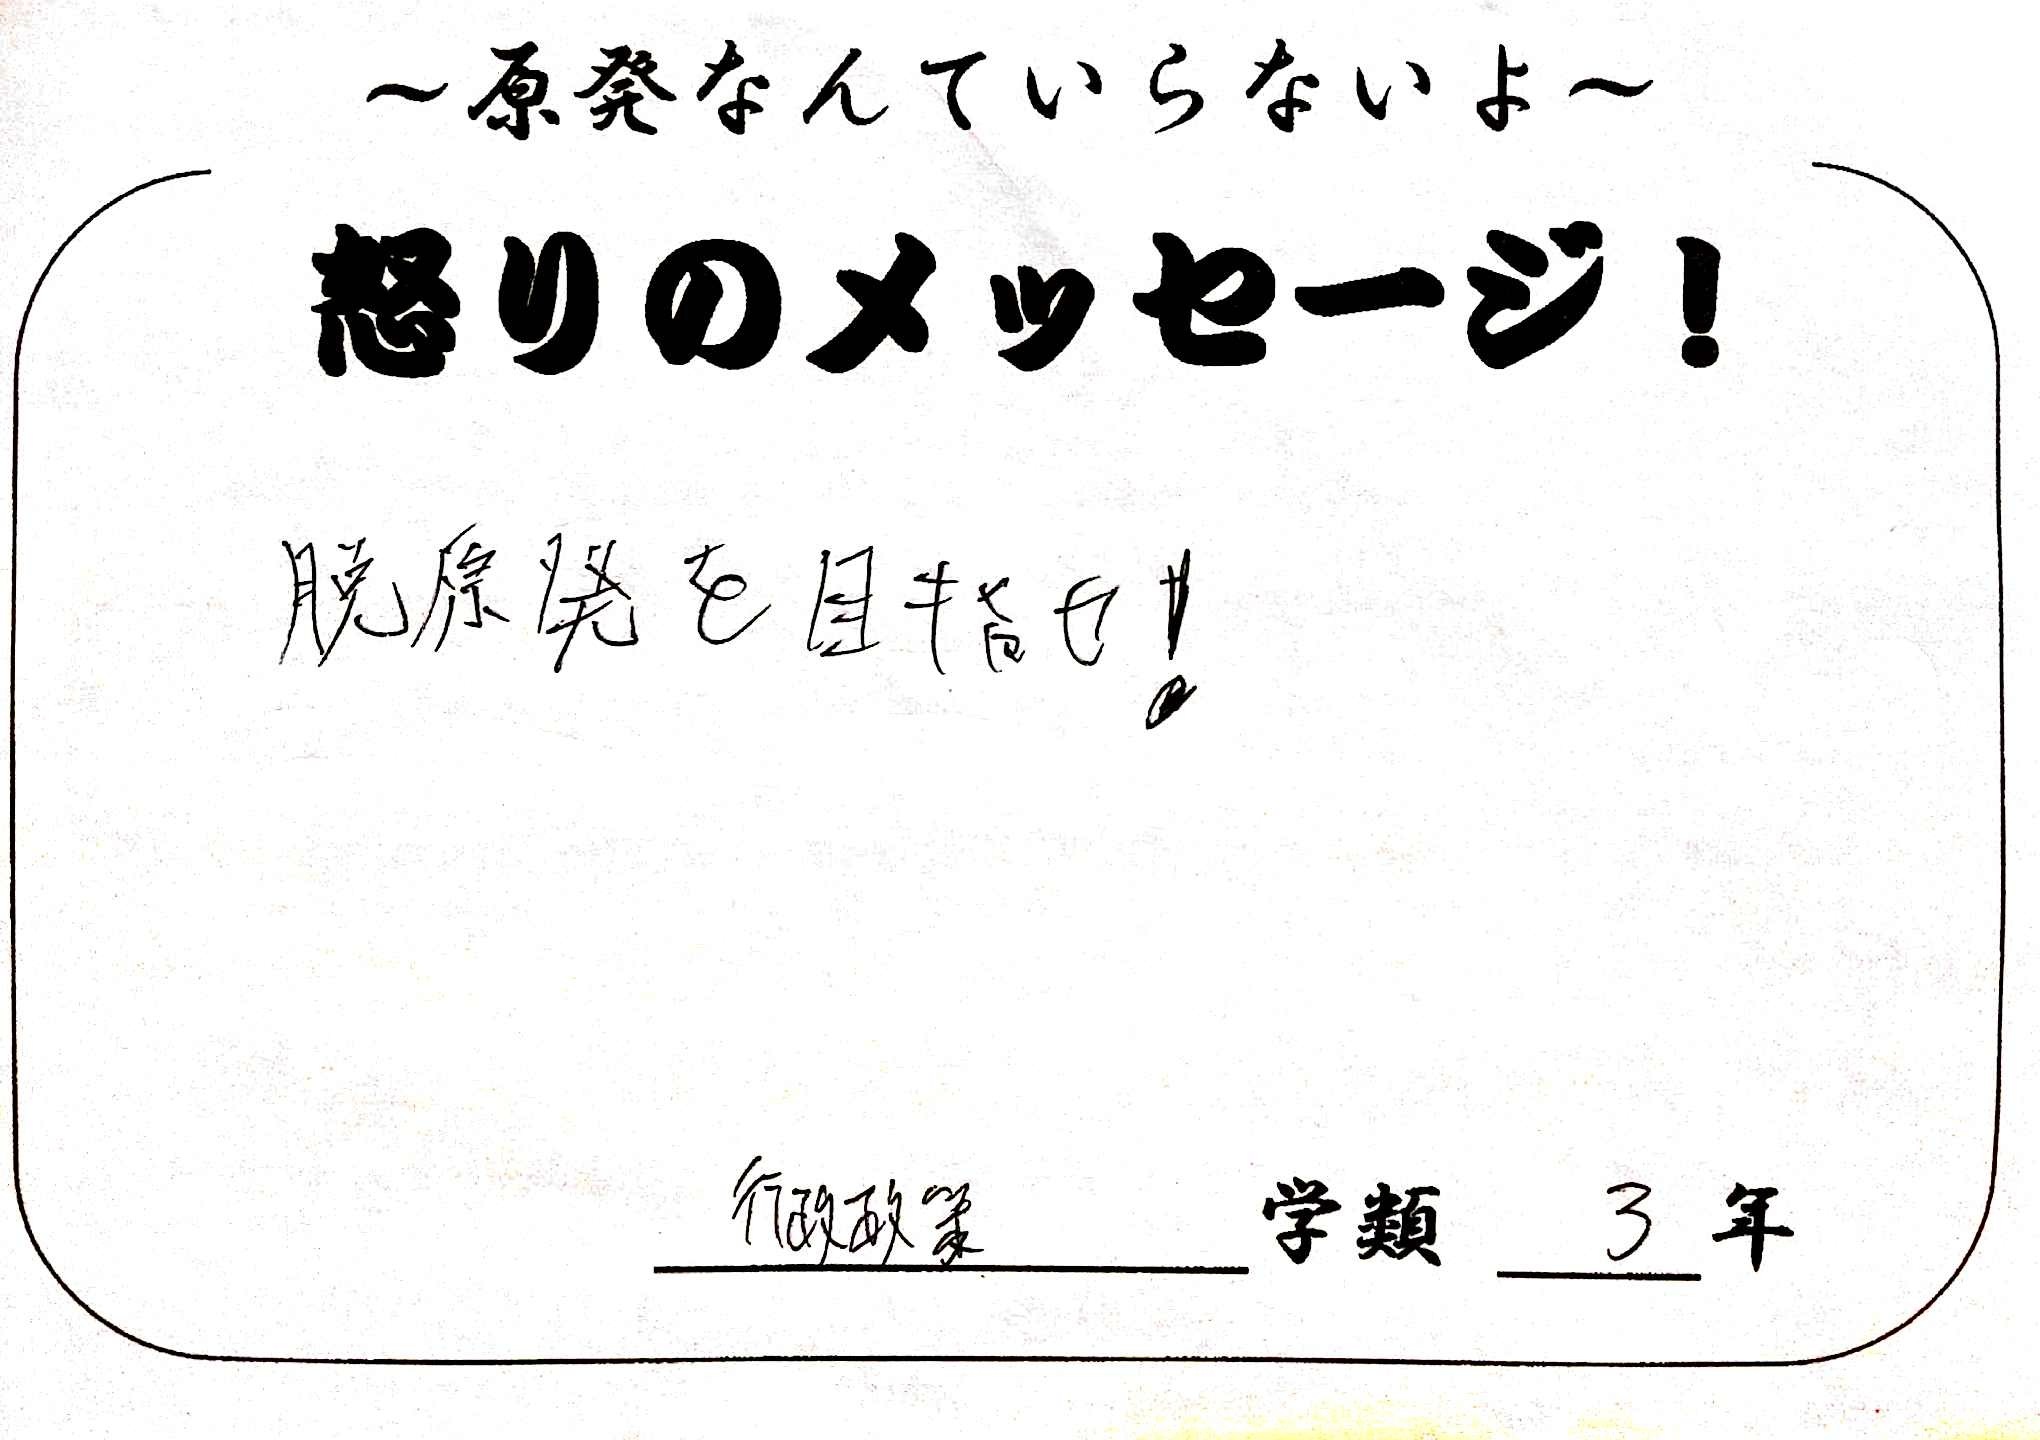 ～原発なんていらないよ～
怒りのメッセージ！
脱原発を目指せ！
行政政策 学類 3 年